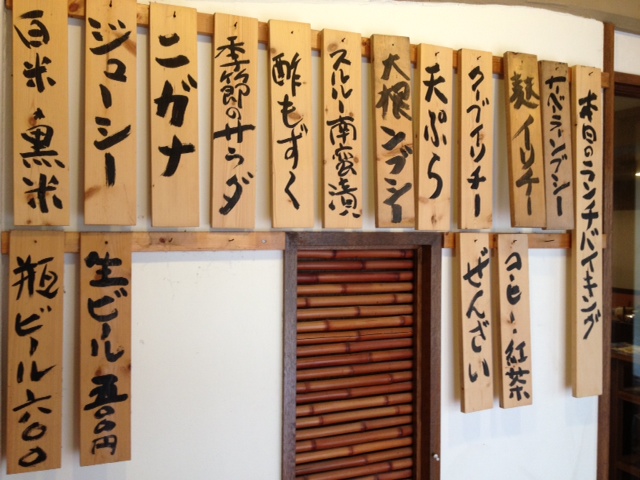 本日のランチバイキング
ナベラーンブシー
麩イリチー
クーブイリチー
天ぷら
大根ンブシー
スルルー南蛮漬
酢もずく
季節のサラダ
ニガナ
ジューシー
白米・黒米
コーヒー・紅茶
ぜんざい
生ビール 五〇〇円
瓶ビール 六〇〇